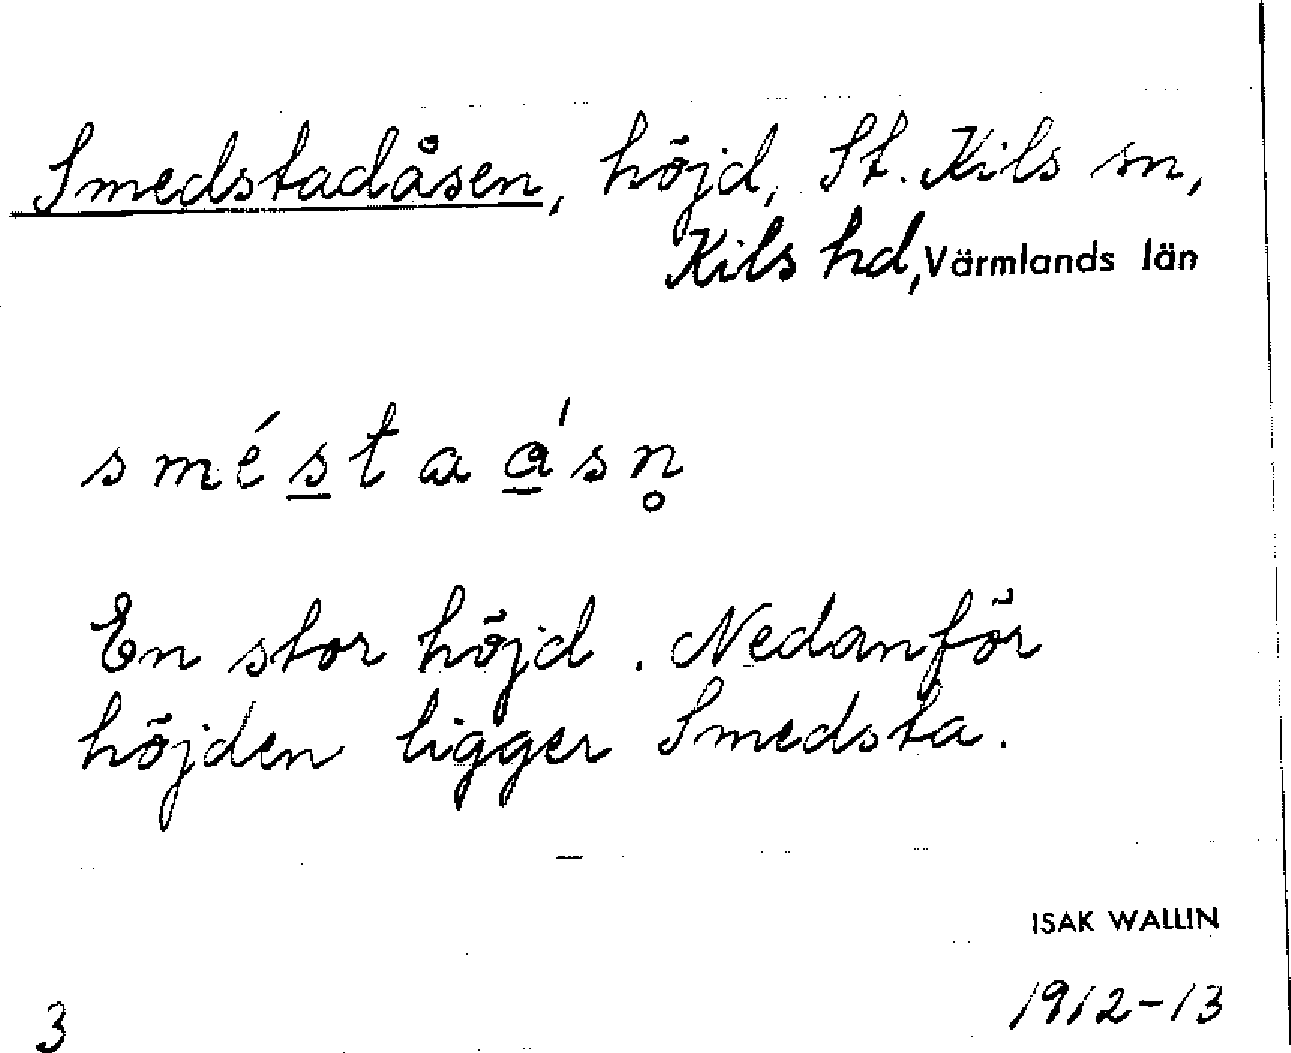 Smedstadåsen, höjd, St. Kils sn,
Kils hd, Värmlands län
smés̲taá̲sn̥
En stor höjd. Nedanför
höjden ligger Smedsta.
ISAK WALLIN
3 1912-13